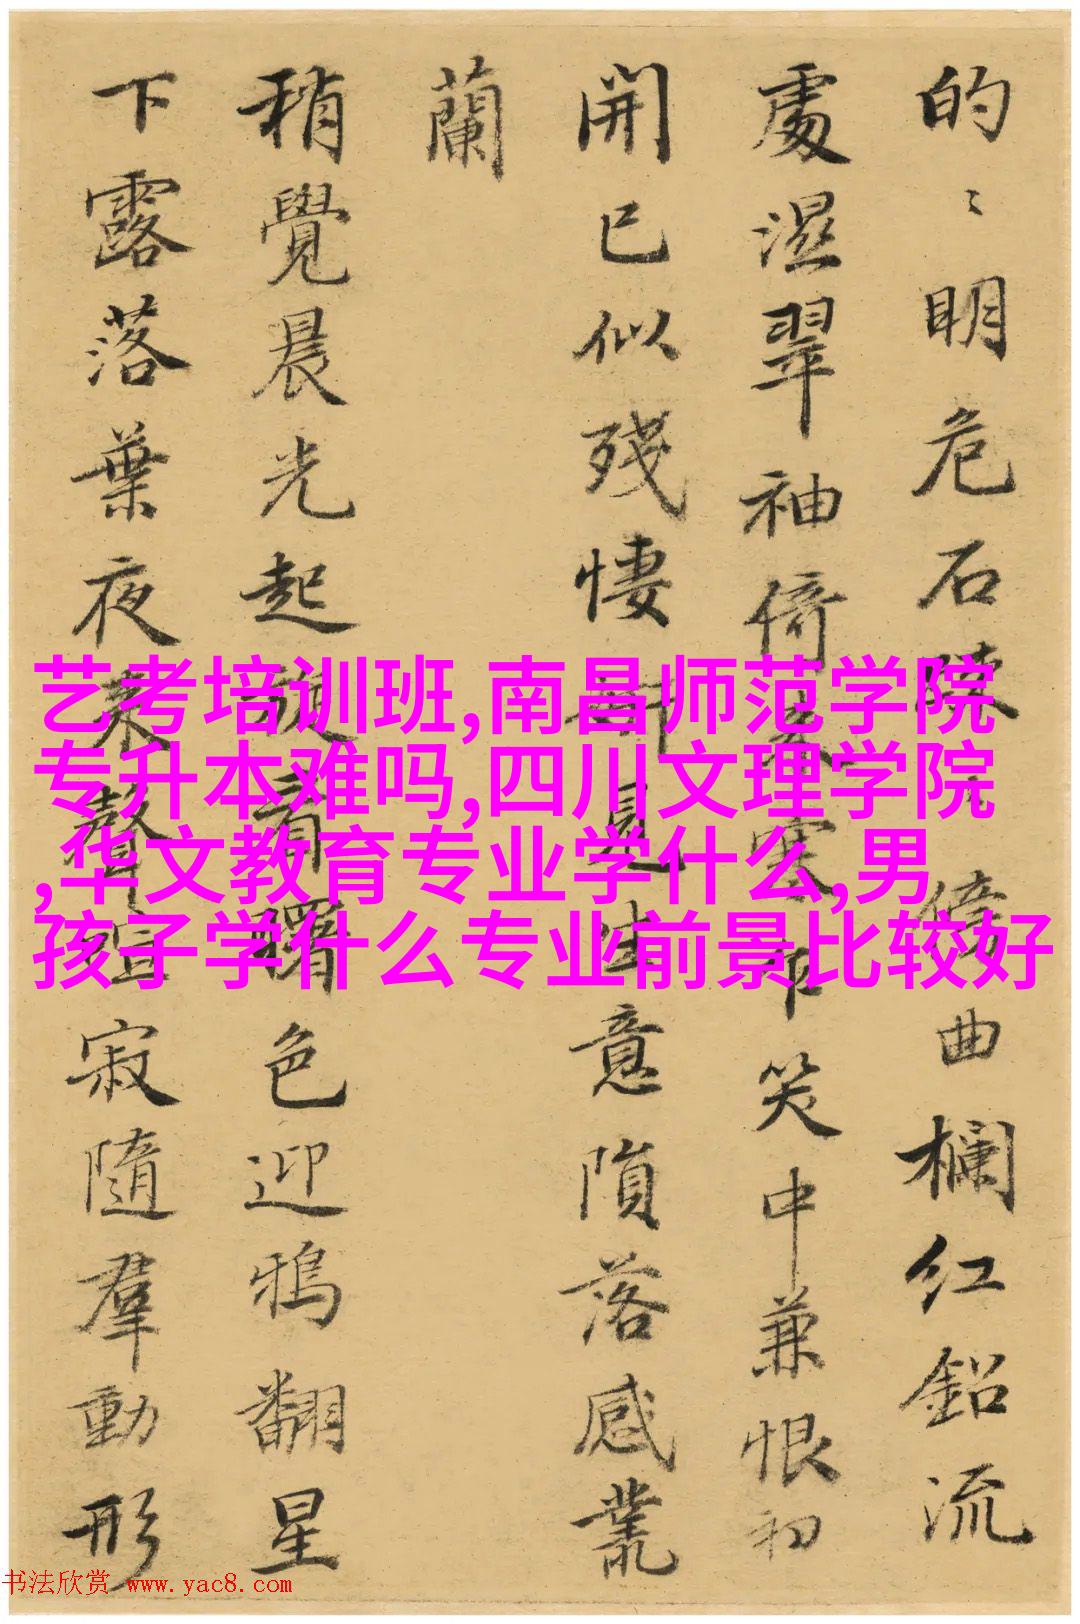 的々明危石陳々傍曲欄红鈆流
處濕翠袖倚寒却笑中兼恨初
開已似残悽却見生意隕落感叢
蘭
稍覺晨光起旋看曙色迎鴉翻星
下露落葉夜来聲喧寂隨羣動形
艺考培训班,南昌师范学院
专升本难吗,四川文理学院
,华文教育专业学什么,男
孩子学什么专业前景比较好
书法欣赏 www.yac8.com